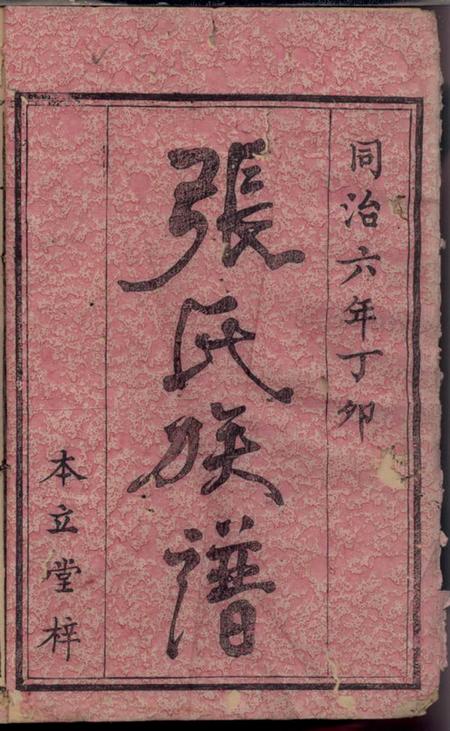 同治六年丁卯
張氏族譜
本立堂梓